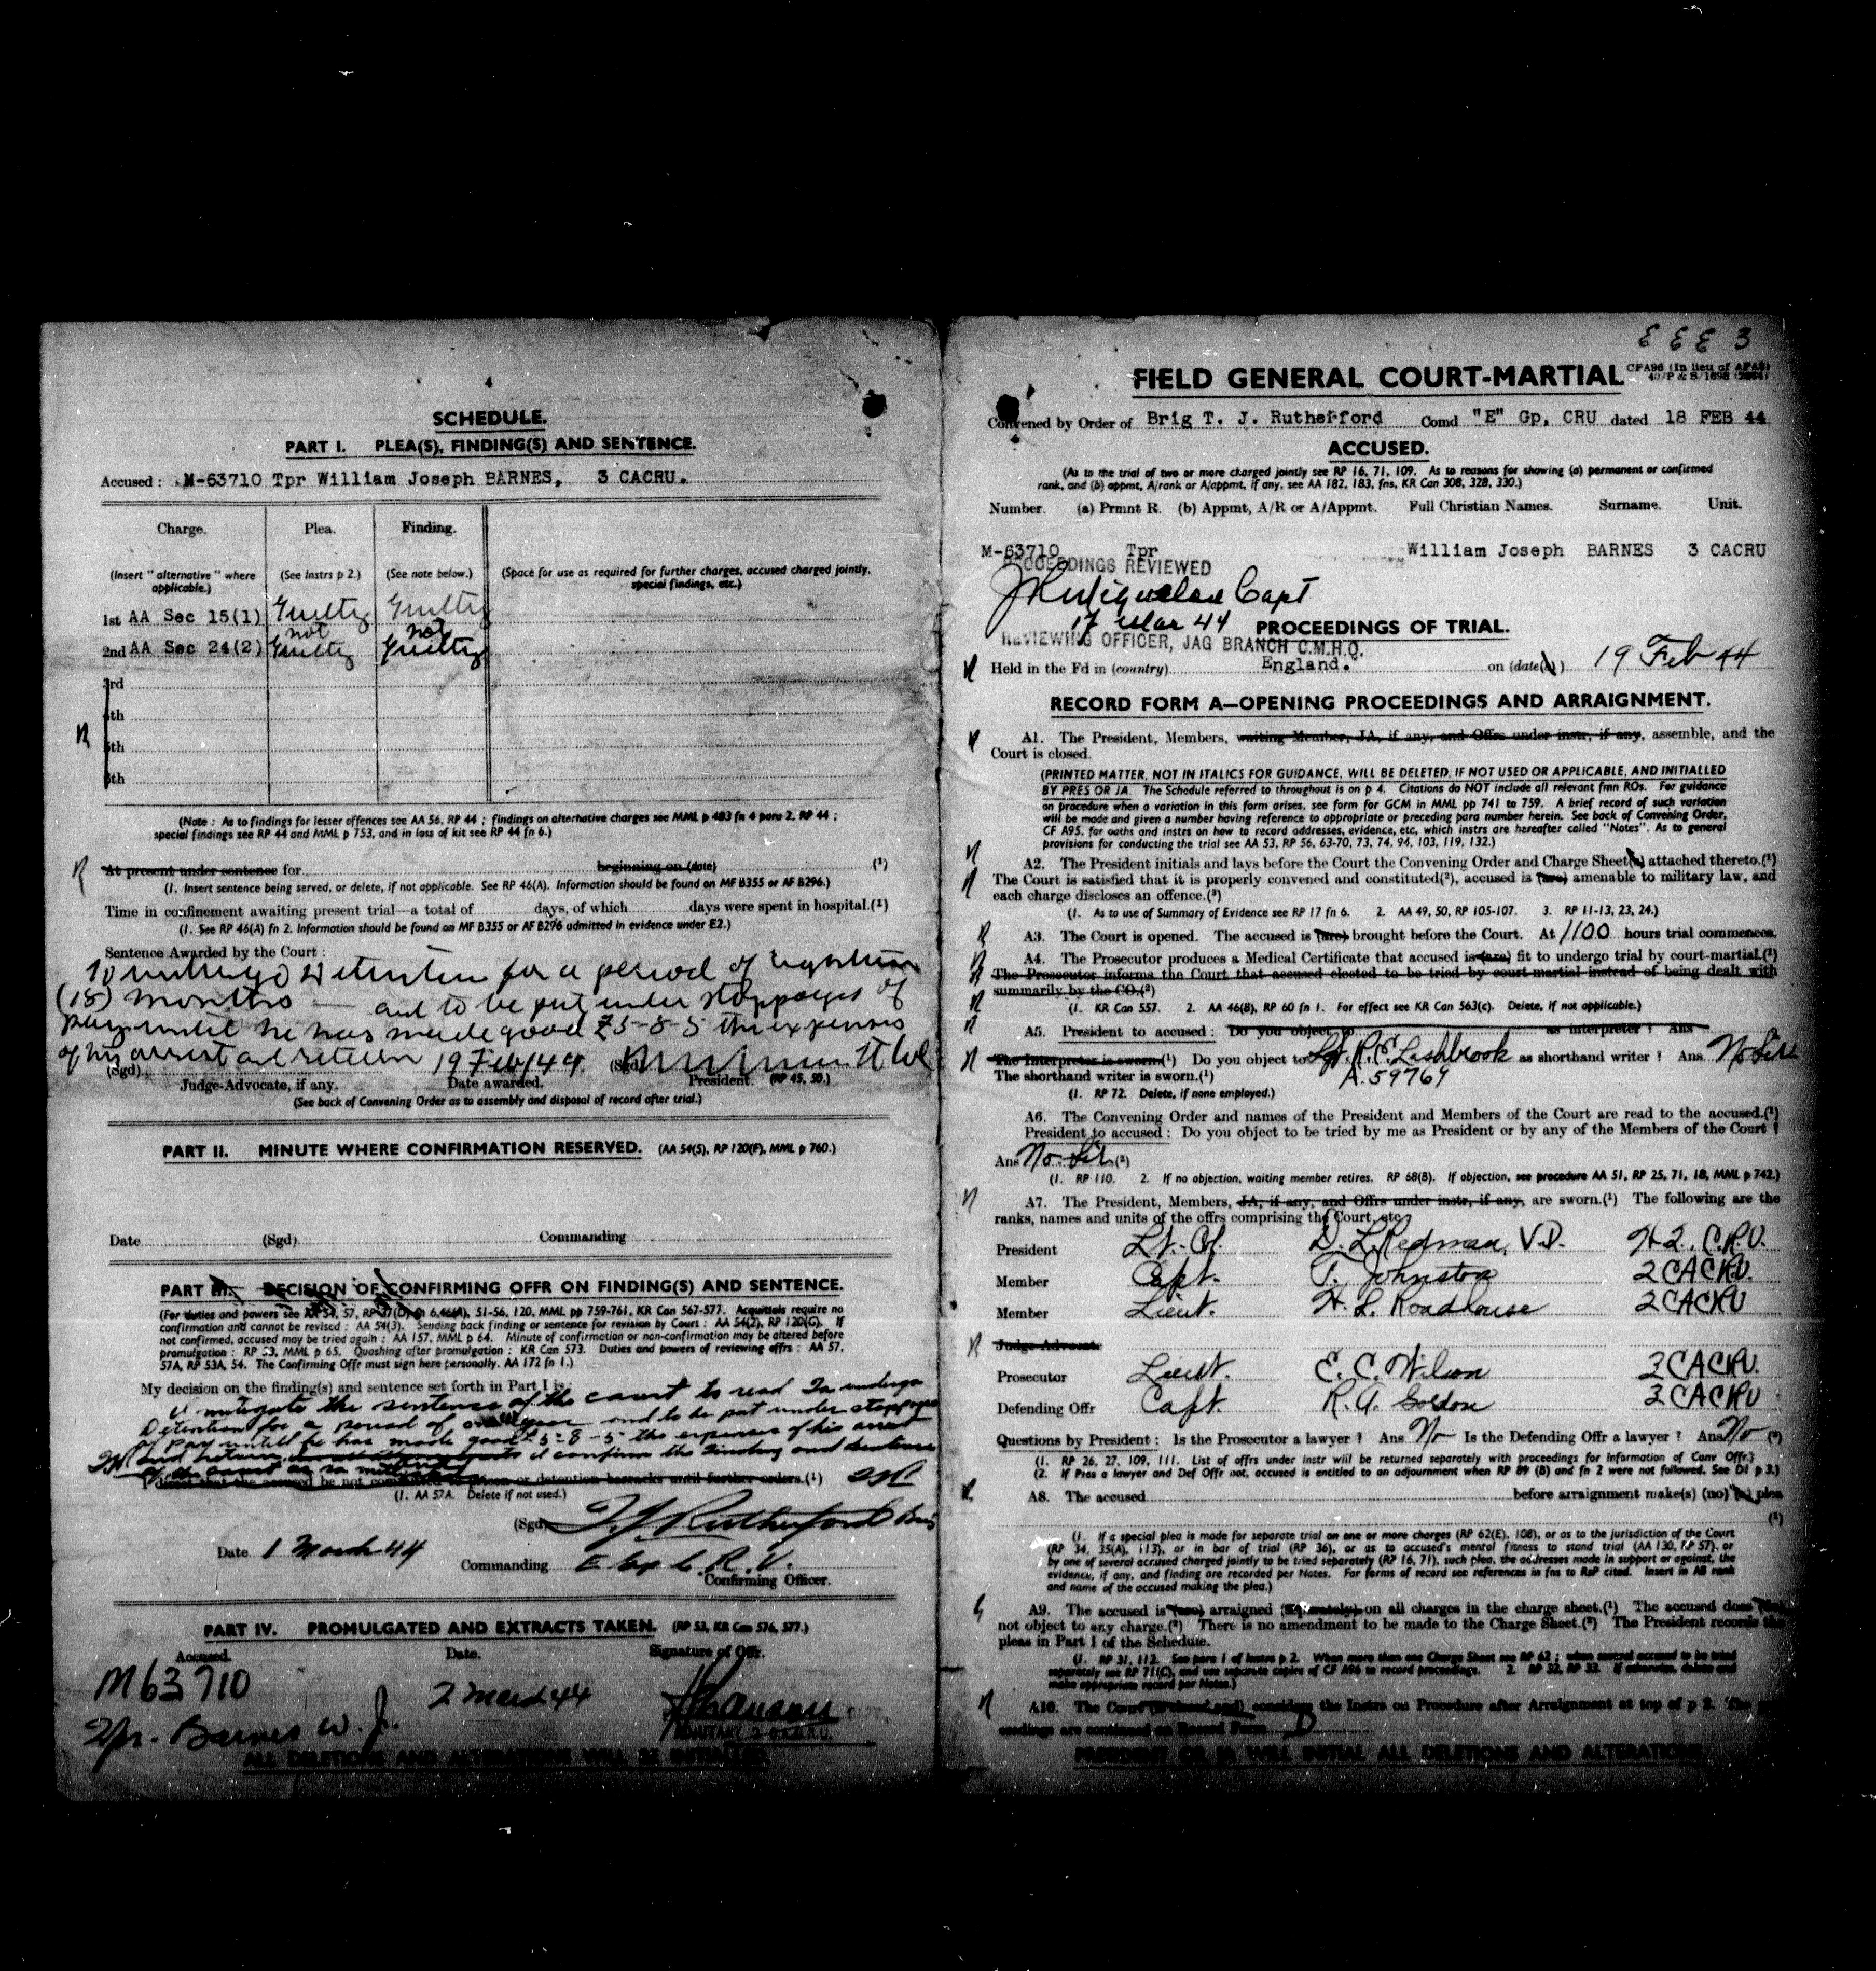 SCHEDULE.
PART I. PLEA(S), FINDING(S) AND SENTENCE.
Accused : M-63710 Tpr William Joseph BARNES, 3 CACRU.
Charge. Plea. Finding.
(Insert "alternative" where applicable.) (See Instrs p 2.) (See note below.) (Space for use as required for further charges, accused charged jointly, special findings, etc.)
1st AA Sec 15(1) Guilty Guilty
2nd AA Sec 24(2) not Guilty not Guilty
3rd
4th
5th
6th
(Note : As to findings for lesser offences see AA 56, RP 44 ; findings on alternative charges see MML p 483 fn 4 para 2, RP 44 ;
special findings see RP 44 and MML p 753, and in loss of kit see RP 44 fn 6.)
At present under sentence for beginning on (date) (¹)
(1. Insert sentence being served, or delete, if not applicable. See RP 46(A). Information should be found on MF B355 or AF B296.)
Time in confinement awaiting present trial—a total of days, of which days were spent in hospital.(¹)
(1. See RP 46(A) fn 2. Information should be found on MF B355 or AF B296 admitted in evidence under E2.)
Sentence Awarded by the Court :
To undergo detention for a period of
months and to be put under stoppages of
pay until he has made good £5-8-5 the expenses
of his arrest and return 19 Feb 44
(Sgd) (Sgd)
Judge-Advocate, if any. Date awarded. President. (RP 45, 50.)
(See back of Convening Order as to assembly and disposal of record after trial.)
PART II. MINUTE WHERE CONFIRMATION RESERVED. (AA 54(5), RP 120(F), MML p 760.)
Date (Sgd) Commanding
PART III. DECISION OF CONFIRMING OFFR ON FINDING(S) AND SENTENCE.
(For duties and powers see AA 54, 57, RP 37(D) fn 6,46(A), 51-56, 120, MML pp 759-761, KR Can 567-577. Acquittals require no
confirmation and cannot be revised : AA 54(3). Sending back finding or sentence for revision by Court : AA 54(2), RP 120(G). If
not confirmed, accused may be tried again : AA 157, MML p 64. Minute of confirmation or non-confirmation may be altered before
promulgation : RP 53, MML p 65. Quashing after promulgation : KR Can 573. Duties and powers of reviewing offrs : AA 57,
57A, RP 53A, 54. The Confirming Offr must sign here personally. AA 172 fn 1.)
My decision on the finding(s) and sentence set forth in Part I is :
I mitigate the sentence of the court to read To undergo
Detention for a period of one year and to be put under stoppages
of Pay untill he has made good £5-8-5 the expenses of his arrest
and return I confirm the finding and sentence
of the court as so
I direct that the accused be not committed to prison or detention barracks until further orders.(¹)
(1. AA 57A. Delete if not used.)
(Sgd) T J Rutherford Brig
Date 1 March 44 Commanding E Gp C.R.U.
Confirming Officer.
PART IV. PROMULGATED AND EXTRACTS TAKEN. (RP 53, KR Can 576, 577.)
Accused. Date. Signature of Offr.
M63710 2 March 44
Tpr. Barnes W. J.
ALL DELETIONS AND ALTERATIONS WILL BE INITIALLED
E E E 3
FIELD GENERAL COURT-MARTIAL
CFA96 (In lieu of AFA3)
40/P & S/1698 (2664)
Convened by Order of Brig T. J. Rutherford Comd "E" Gp, CRU dated 18 FEB 44
ACCUSED.
(As to the trial of two or more charged jointly see RP 16, 71, 109. As to reasons for showing (a) permanent or confirmed
rank, and (b) appmt, A/rank or A/appmt, if any, see AA 182, 183, fns, KR Can 308, 328, 330.)
Number. (a) Prmnt R. (b) Appmt, A/R or A/Appmt. Full Christian Names. Surname. Unit.
M-63710 Tpr William Joseph BARNES 3 CACRU
PROCEEDINGS REVIEWED
Capt
17 Mar 44
REVIEWING OFFICER, JAG BRANCH C.M.H.Q.
PROCEEDINGS OF TRIAL.
Held in the Fd in (country) England. on (date(s)) 19 Feb 44
RECORD FORM A—OPENING PROCEEDINGS AND ARRAIGNMENT.
A1. The President, Members, waiting Member, JA, if any, and Offrs under instr, if any, assemble, and the
Court is closed.
(PRINTED MATTER, NOT IN ITALICS FOR GUIDANCE, WILL BE DELETED, IF NOT USED OR APPLICABLE, AND INITIALLED
BY PRES OR JA. The Schedule referred to throughout is on p 4. Citations do NOT include all relevant fmn ROs. For guidance
on procedure when a variation in this form arises, see form for GCM in MML pp 741 to 759. A brief record of such variation
will be made and given a number having reference to appropriate or preceding para number herein. See back of Convening Order,
CF A95, for oaths and instrs on how to record addresses, evidence, etc, which instrs are hereafter called "Notes". As to general
provisions for conducting the trial see AA 53, RP 56, 63-70, 73, 74, 94, 103, 119, 132.)
A2. The President initials and lays before the Court the Convening Order and Charge Sheet(s) attached thereto.(¹)
The Court is satisfied that it is properly convened and constituted(²), accused is (are) amenable to military law, and
each charge discloses an offence.(³)
(1. As to use of Summary of Evidence see RP 17 fn 6. 2. AA 49, 50, RP 105-107. 3. RP 11-13, 23, 24.)
A3. The Court is opened. The accused is (are) brought before the Court. At 1100 hours trial commences.
A4. The Prosecutor produces a Medical Certificate that accused is (are) fit to undergo trial by court-martial.(¹)
The Prosecutor informs the Court that accused elected to be tried by court-martial instead of being dealt with
summarily by the CO.(²)
(1. KR Can 557. 2. AA 46(8), RP 60 fn 1. For effect see KR Can 563(c). Delete, if not applicable.)
A5. President to accused : Do you object to as interpreter ? Ans
The Interpreter is sworn.(¹) Do you object to Sgt. R. E. Lashbrook as shorthand writer ? Ans. No Sir
The shorthand writer is sworn.(¹) A.59769
(1. RP 72. Delete, if none employed.)
A6. The Convening Order and names of the President and Members of the Court are read to the accused.(¹)
President to accused : Do you object to be tried by me as President or by any of the Members of the Court ?
Ans No. Sir.(²)
(1. RP 110. 2. If no objection, waiting member retires. RP 68(B). If objection, see procedure AA 51, RP 25, 71, 18, MML p 742.)
A7. The President, Members, JA, if any, and Offrs under instr, if any, are sworn.(¹) The following are the
ranks, names and units of the offrs comprising the Court, etc
President Lt.-Col. D. L. Redman, V.D. H.Q. C.R.U.
Member Capt. T. Johnston 2 CACRU.
Member Lieut. H. L. Roadhouse 2 CACRU
Judge-Advocate
Prosecutor Lieut. E. C. Wilson 3 CACRU.
Defending Offr Capt. R. A. Gordon 3 CACRU
Questions by President : Is the Prosecutor a lawyer ? Ans No Is the Defending Offr a lawyer ? Ans No (²)
(1. RP 26, 27, 109, 111. List of offrs under instr will be returned separately with proceedings for information of Conv Offr.)
(2. If Pros a lawyer and Def Offr not, accused is entitled to an adjournment when RP 89 (B) and fn 2 were not followed. See D1 p 3.)
A8. The accused before arraignment make(s) (no) (a) plea
(¹)
(1. If a special plea is made for separate trial on one or more charges (RP 62(E), 108), or as to the jurisdiction of the Court
(RP 34, 35(A), 113), or in bar of trial (RP 36), or as to accused's mental fitness to stand trial (AA 130, RP 57), or
by one of several accused charged jointly to be tried separately (RP 16, 71), such plea, the addresses made in support or against, the
evidence, if any, and finding are recorded per Notes. For forms of record see references in fns to RsP cited. Insert in A8 rank
and name of the accused making the plea.)
A9. The accused is (are) arraigned (separately) on all charges in the charge sheet.(¹) The accused does
not object to any charge.(²) There is no amendment to be made to the Charge Sheet.(²) The President records the
pleas in Part I of the Schedule.
(1. RP 31, 112. See para 1 of Instrs p 2. When more than one Charge Sheet see RP 62 ; when several accused to be tried
separately see RP 71(C), and use separate copies of CF A96 to record proceedings. 2. RP 32, RP 33. If otherwise, delete and
make appropriate record per Notes.)
A10. The Court considers the Instrs on Procedure after Arraignment at top of p 2. The
ceedings are continued on Record Form D
PRESIDENT OR JA WILL INITIAL ALL DELETIONS AND ALTERATIONS